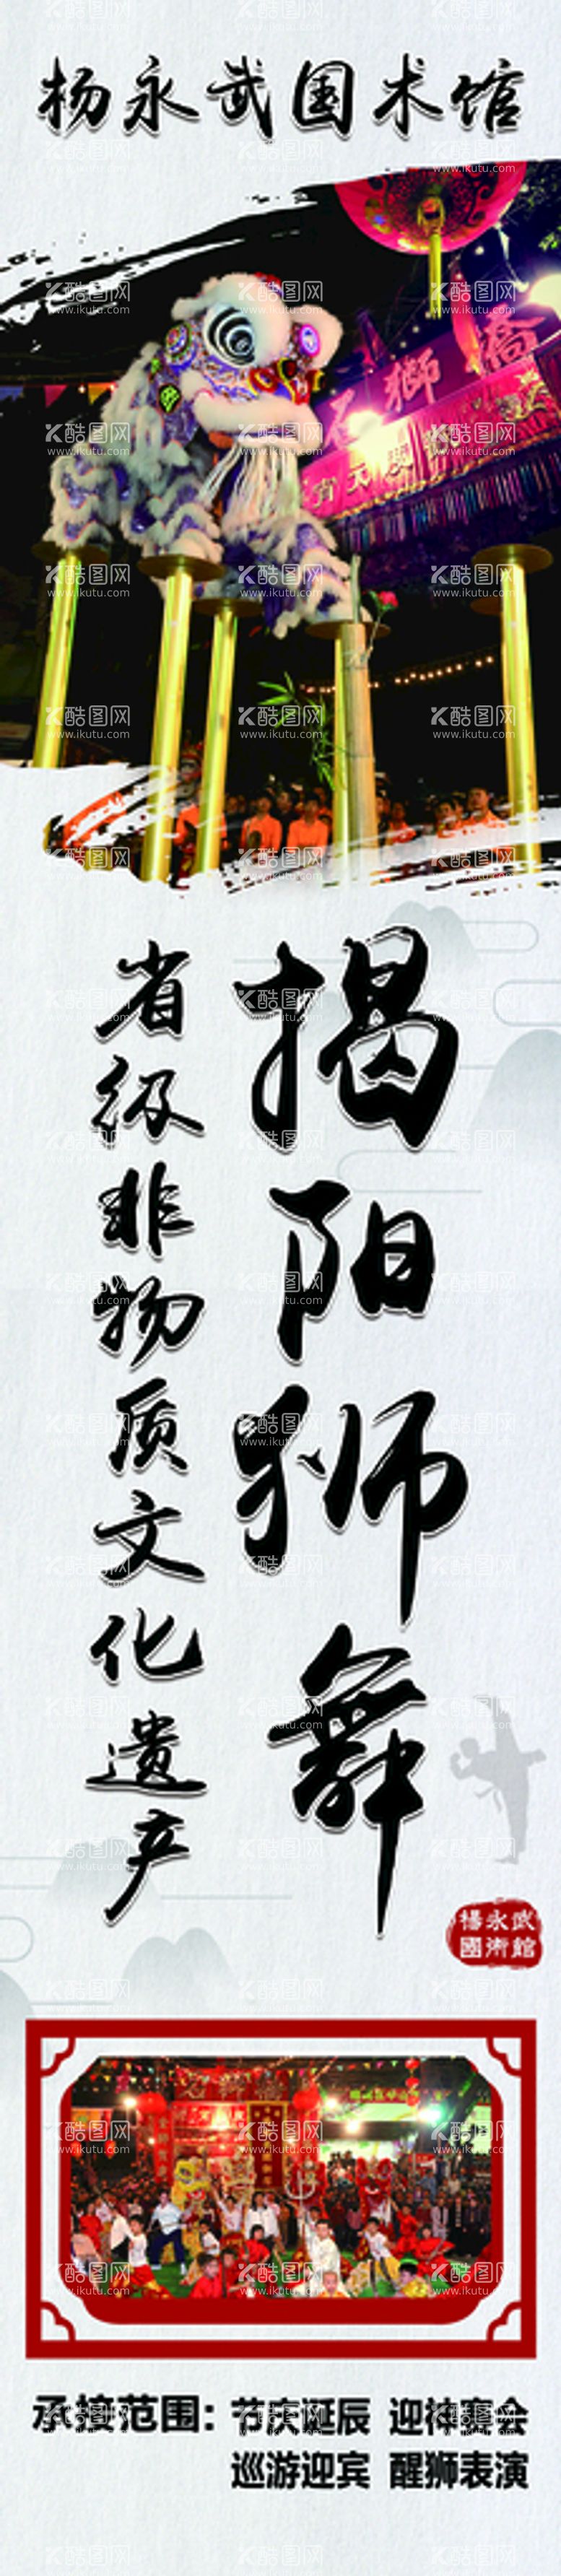 杨永武国术馆
獅 喬
宵天
揭阳狮舞
省级非物质文化遗产
楊永武
國術館
承接范围：节庆诞辰 迎神赛会
巡游迎宾 醒狮表演
酷图网
www.ikutu.com